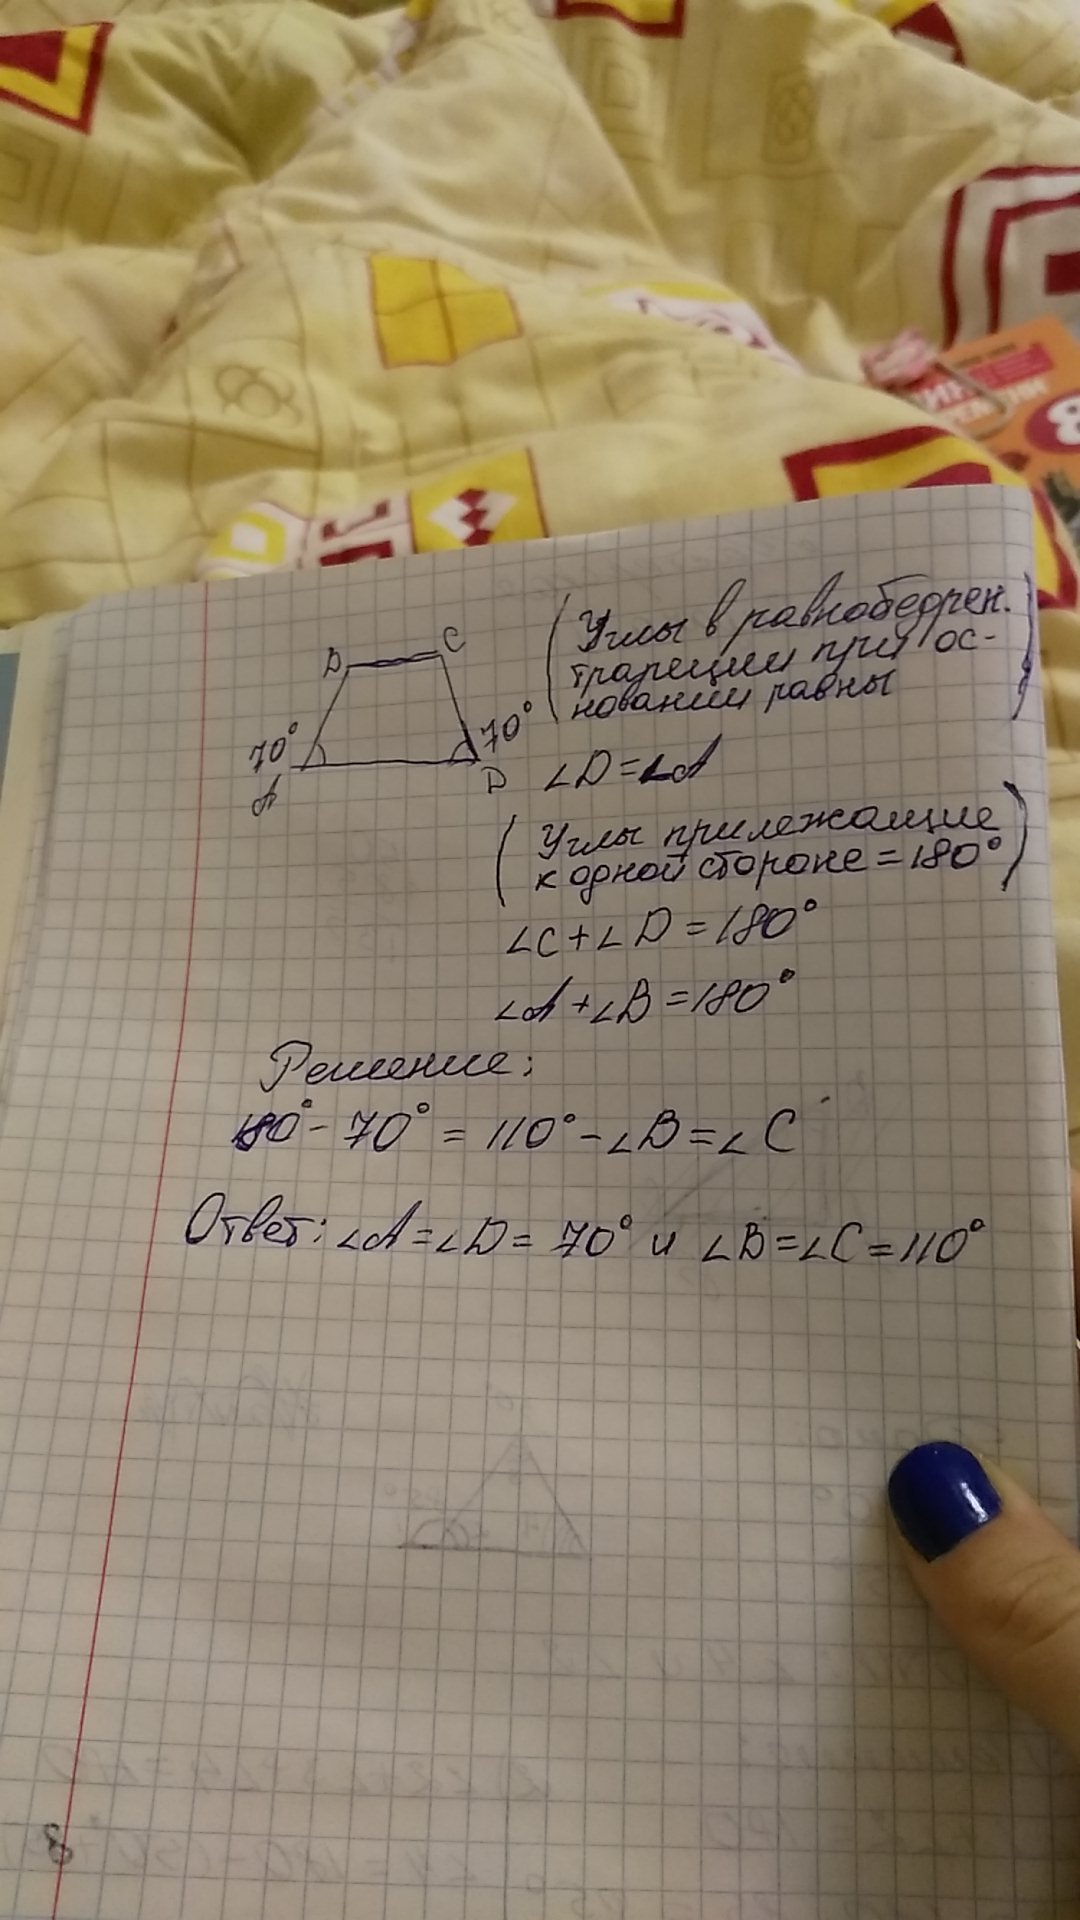 B
C
70°
A
70°
D
(Углы в равнобедрен.
трапеции при ос-
нования равны)
∠D=∠A
(Углы прилежащие
к одной стороне = 180°)
∠C+∠D=180°
∠A+∠B=180°
Решение:
180°- 70° = 110° - ∠B=∠C
Ответ: ∠A=∠D= 70° и ∠B=∠C=110°
8